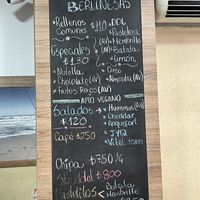 BERLINESAS
• Rellenos Comunes $110
• DDL
• Pastelera
• Membrillo
• Batata
Especiales $130
• Limón
• Nutella
• Oreo
• Chocolate (AV)
• Frutos Rojos (AV)
APTO VEGANO
Salados $120
• Hummus (AV)
• Cheddar
• Roquefort
• JYQ
Café $250
• Vitel toné
Chipa $750 1/4
$800
Pastelitos
Batata
Membrillo